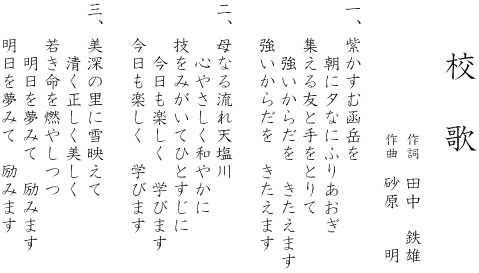 校歌
作詞 田中 鉄雄
作曲 砂原 明
一、紫かすむ函岳を
朝に夕なにふりあおぎ
集える友と手をとりて
強いからだを きたえます
強いからだを きたえます
二、母なる流れ天塩川
心やさしく和やかに
技をみがいてひとすじに
今日も楽しく 学びます
今日も楽しく 学びます
三、美深の里に雪映えて
清く正しく美しく
若き命を燃やしつつ
明日を夢みて 励みます
明日を夢みて 励みます